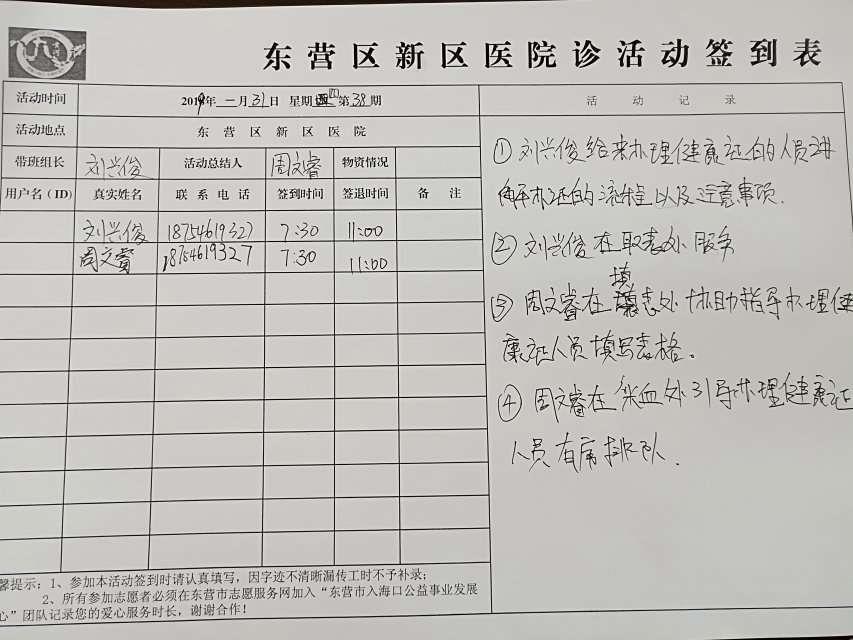 东营区新区医院诊活动签到表
活动时间 2019年 一月31日 星期四 第38期
活动地点 东营区新区医院
带班组长 刘兴俊 活动总结人 周文睿 物资情况
用户名(ID) 真实姓名 联系电话 签到时间 签退时间 备注
刘兴俊 18754619327 7:30 11:00
周文睿 18754619327 7:30 11:00
活动记录
①刘兴俊给来办理健康证的人员讲
解办证的流程以及注意事项.
②刘兴俊在取表处服务
填
③周文睿在表处协助指导办理健
康证人员填写表格。
④周文睿在采血处引导办理健康证
人员有序排队.
馨提示:1、参加本活动签到时请认真填写,因字迹不清晰漏传工时不予补录;
2、所有参加志愿者必须在东营市志愿服务网加入“东营市入海口公益事业发展
心”团队记录您的爱心服务时长,谢谢合作!